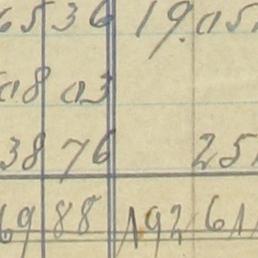 65 36 19.05
08 03
38 76 25
69 88 192 61